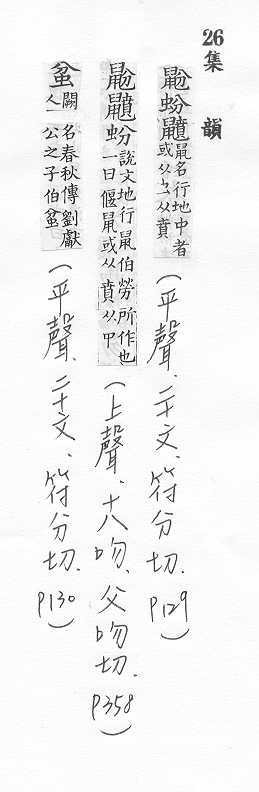 26 集韻
鼢蚡 鼠名行地中者或从虫从賁（平聲、二十文、符分切. P129）
鼢蚡 說文地行鼠伯勞所作也一曰偃鼠或从賁从虫（上聲、十八吻、父吻切. P358）
蚠 闕人名春秋傳劉獻公之子伯蚠（平聲、二十文、符分切. P130）